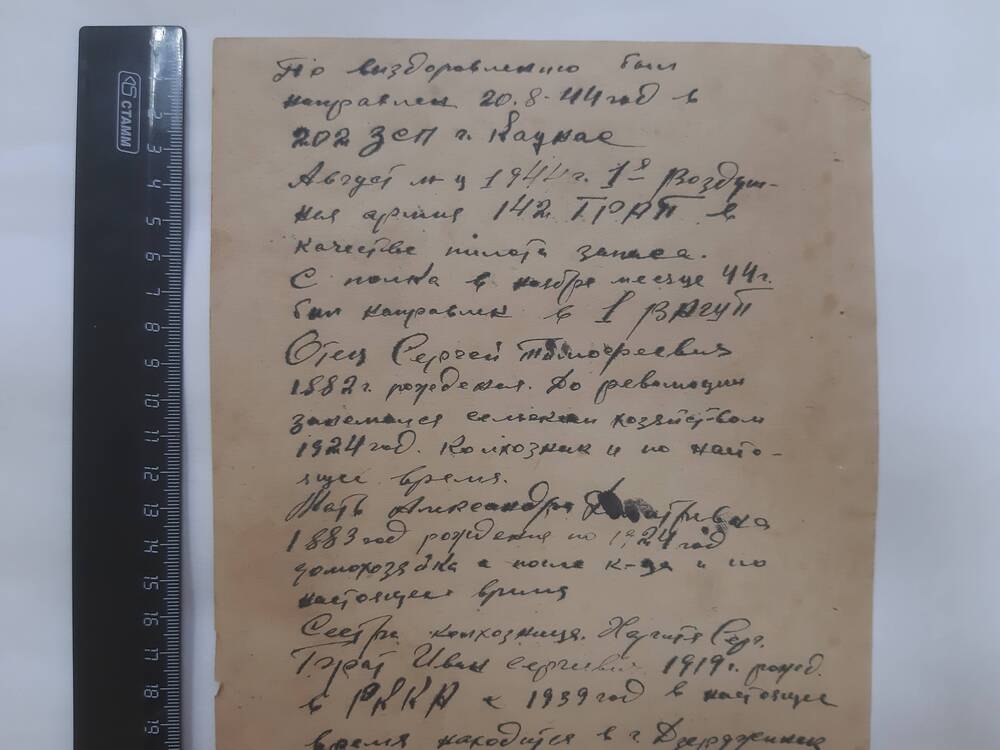 СТАММ
2
3
4
5
6
7
8
9
10
11
12
13
14
15
16
17
18
19
По выздоровлению был
направлен 20.8.44 год в
202 ЗСП г. Каунас
Август м-ц 1944 г. 1я Воздуш-
ная армия 142 ТРАП в
качестве пилота запаса.
С полка в ноябре месяце 44 г.
был направлен в 1 ВАГУП
Отец Сергей Тимофеевич
1882 г. рождения. До революции
занемался сельским хозяйством
1924 год. Колхозник и по насто-
ящее время.
Мать Александра
1883 год рождения по 1924 год
домохозяйка а после к-ца и по
настоящее время
Сестра колхозница. Серг.
Брат Иван Сергеевич 1919 г. рожд.
в РККА с 1939 год в настоящее
время находится в г. Дзержинск